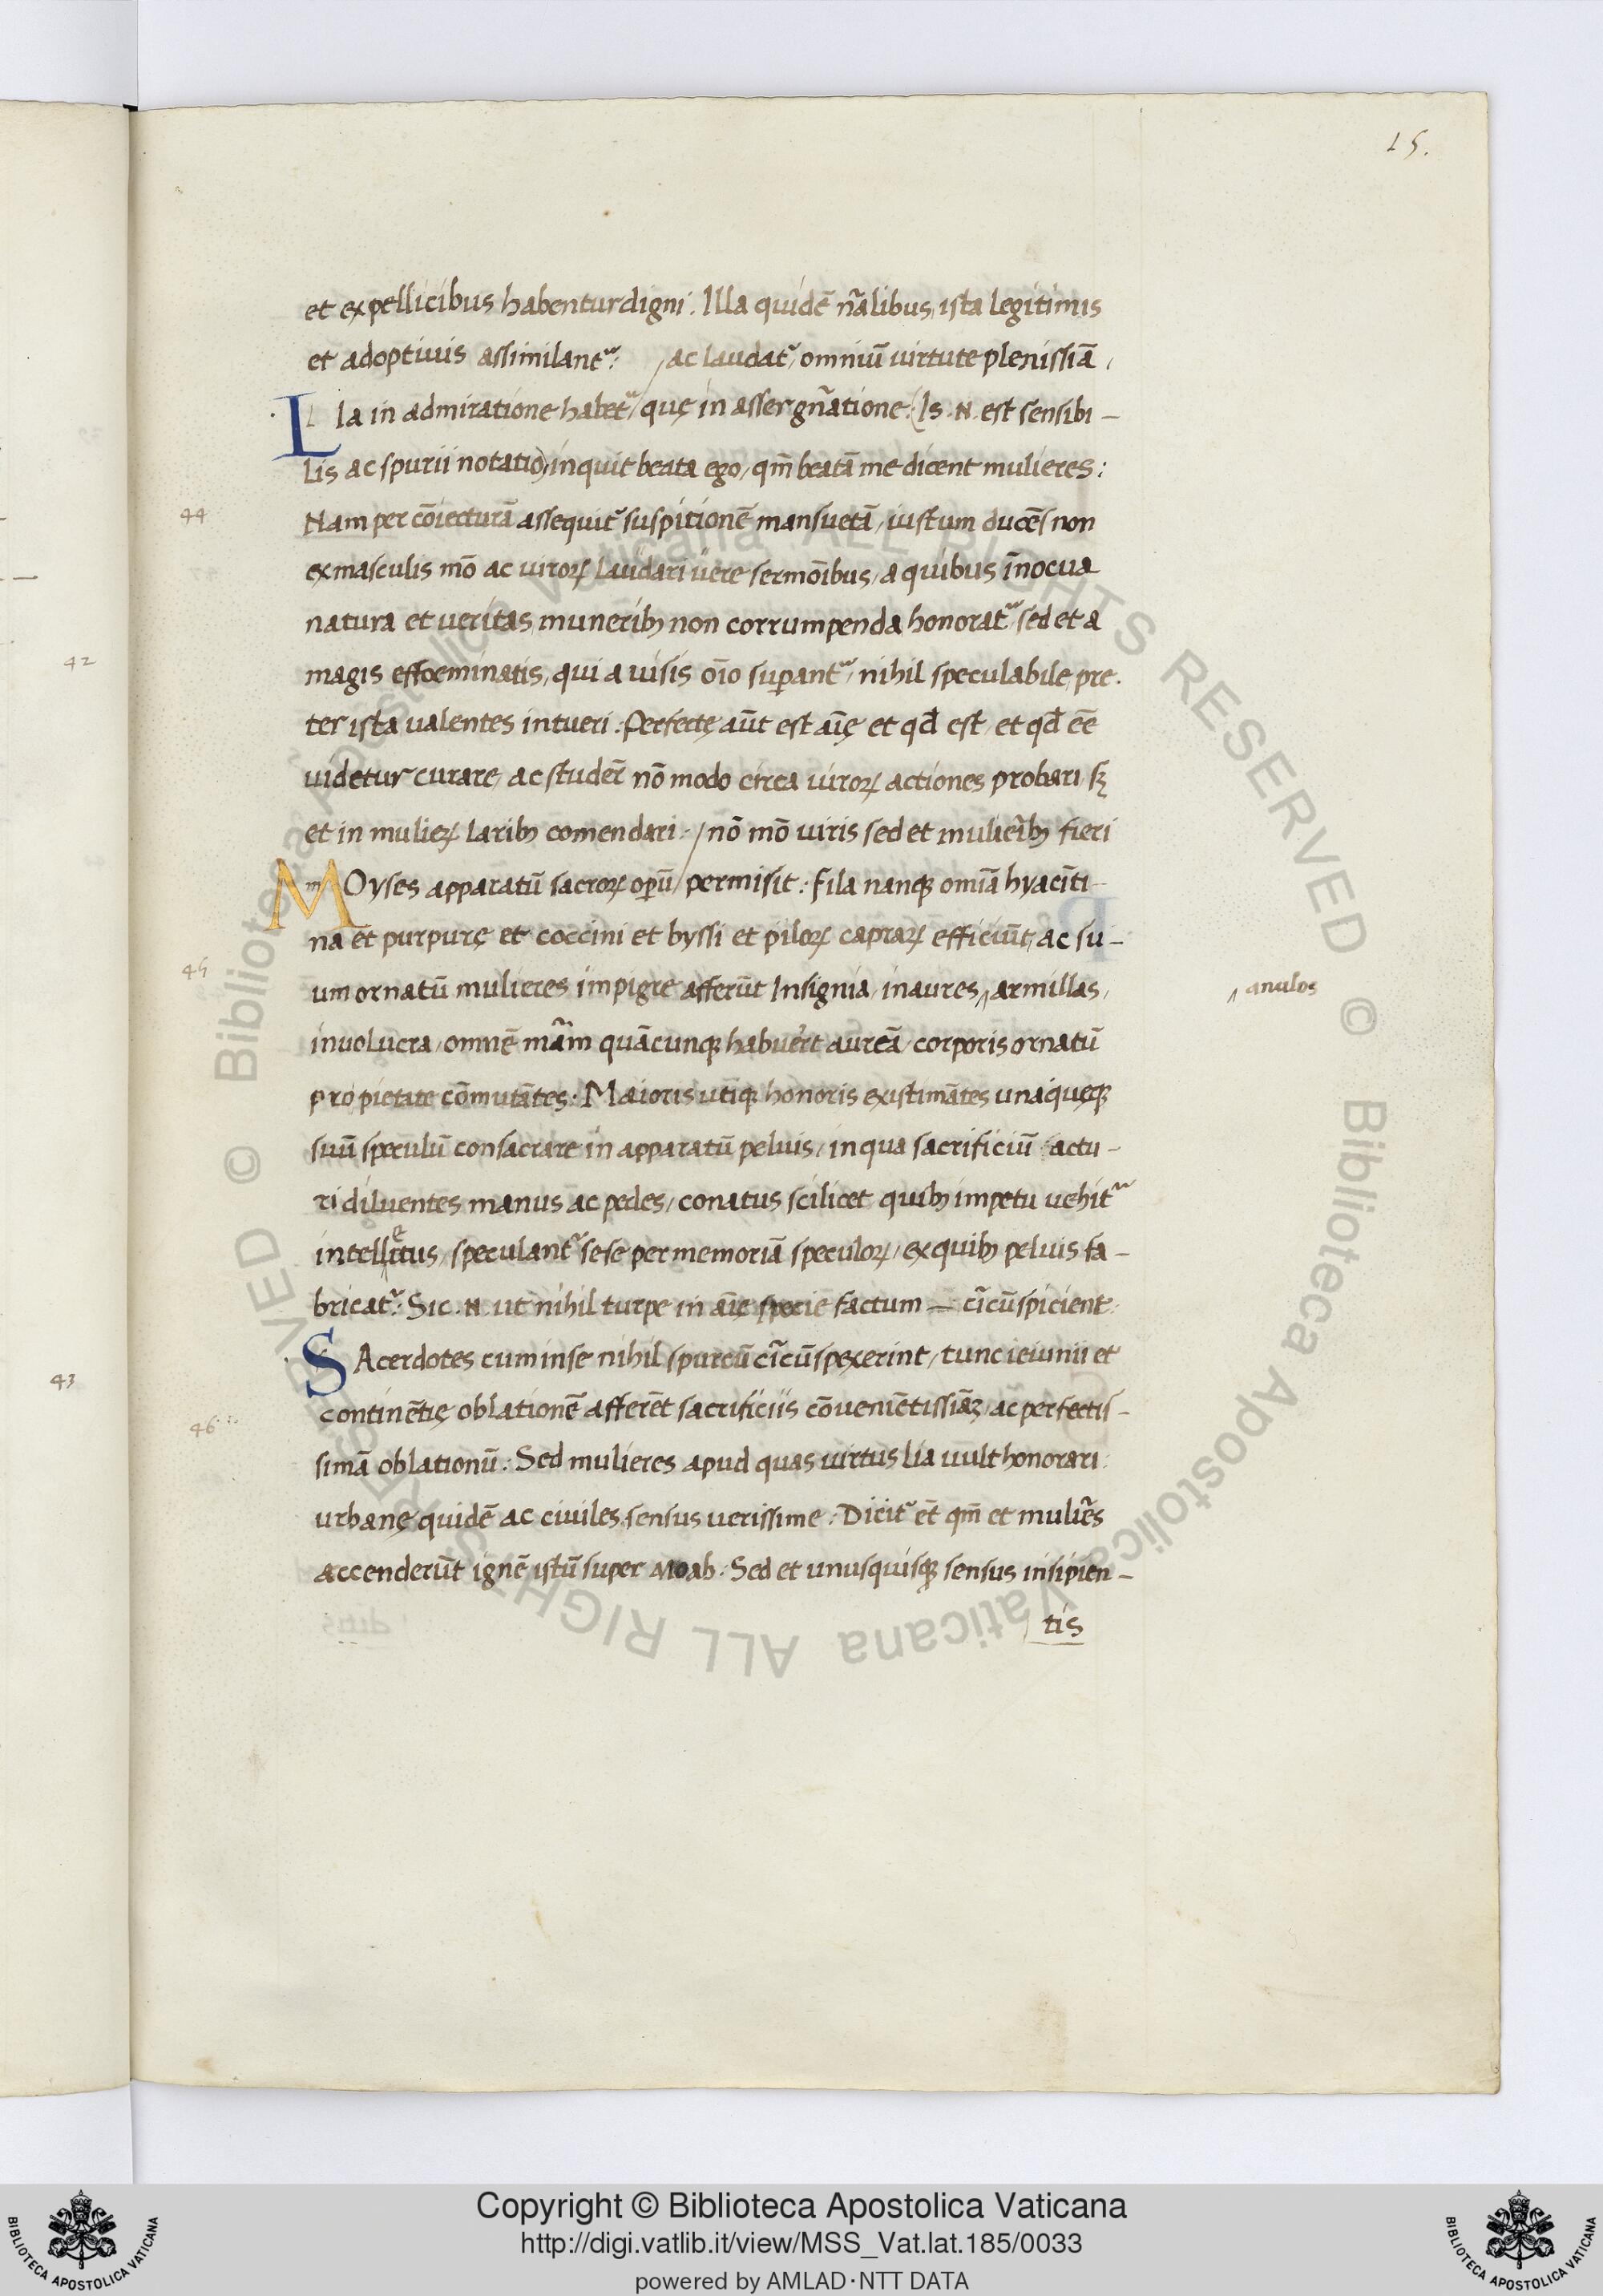 15.
et ex pellicibus habentur digni. Illa quidē nr̃alibus, ista legitimis
et adoptiuis assimilantᷣ: / ac laudatᷣ, omniū uirtute plenissiā,
Lla in admiratione habetᷣ, quę in asser gn̄atione (Is .N. est sensibi-
lis ac spurii notatio) inquit beata ego, qm̄ beatā me dicent mulieres:
44
Nam per cōiecturā assequitᷣ suspitionē mansuetā, iustum ducēs non
ex masculis mō ac uiroꝝ laudari uere sermōibus, a quibus īnocua
natura et ueritas muneribꝫ non corrumpenda honoratᷣ sed et a
42
magis effoeminatis, qui a uisis oīo suꝑantᷣ, nihil speculabile, pre-
ter ista ualentes intueri: Perfectę aūt est aīę et qd̄ est, et qd̄ eē
uidetur curare, ac studer̄ nō modo circa uiroꝝ actiones probari sꝫ
et in mulieꝝ laribꝫ comendari: / nō mō uiris sed et mulierībꝫ fieri
MOyses apparatū sacroꝝ oꝑū / permisit: fila nanqꝫ omīa hyacīti-
na et purpurę et coccini et byssi et piloꝝ capraꝝ efficiūt, ac su-
45
um ornatū mulieres impigre afferūt Insignia, inaures, ^ armillas,
^ anulos
inuolucra, omnē mām̄ quācunqꝫ habuer̄t aureā, corporis ornatū
pro pietate cōmutātes. Maioris utiqꝫ honoris existimātes unaquęqꝫ
suū speculū consacrare in apparatū peluis, in qua sacrificiū factu-
ri diluentes manus ac pedes, conatus scilicet quibꝫ impetu uehitᷣ
intellectus, speculantᷣ sese per memoriā speculoꝝ, ex quibꝫ peluis fa-
bricatᷣ: Sic .N. ut nihil turpe in aīę specie factum — cīcūspicient:
43
SAcerdotes cum in se nihil spurcū cīcūspexerint, tunc ieiunii et
46
continētię oblationē afferēt sacrificiis cōueniētissiāꝫ, ac perfectis-
simā oblationū: Sed mulieres apud quas uirtus lia uult honorari:
urbanę quidē ac ciuiles, sensus uerissime: Dicitᷣ et̄ qm̄ et mulier̄s
accenderūt ignē istū super Moab: Sed et unusquisqꝫ sensus insipien-
tis
© Biblioteca Apostolica Vaticana ALL RIGHTS RESERVED © Biblioteca Apostolica Vaticana ALL RIGHTS RESERVED
Copyright © Biblioteca Apostolica Vaticana
http://digi.vatlib.it/view/MSS_Vat.lat.185/0033
powered by AMLAD·NTT DATA
BIBLIOTECA APOSTOLICA VATICANA
BIBLIOTECA APOSTOLICA VATICANA